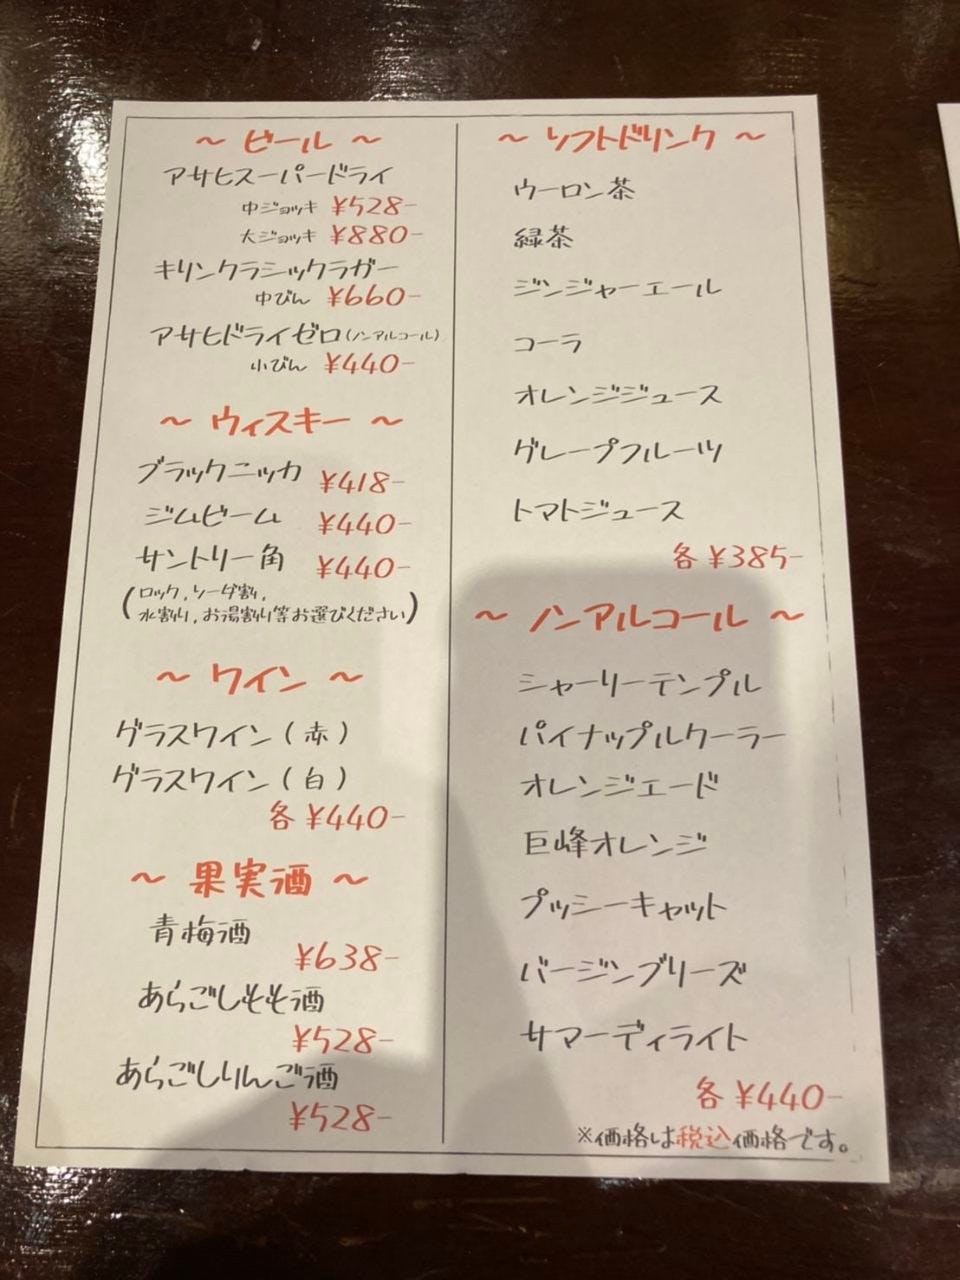 ～ ビール ～
アサヒスーパードライ
中ジョッキ ¥528-
大ジョッキ ¥880-
キリンクラシックラガー
中びん ¥660-
アサヒドライゼロ(ノンアルコール)
小びん ¥440-
～ ウィスキー ～
ブラックニッカ ¥418-
ジムビーム ¥440-
サントリー角 ¥440-
(ロック,ソーダ割,
水割り,お湯割り等お選びください)
～ ワイン ～
グラスワイン(赤)
グラスワイン(白)
各 ¥440-
～ 果実酒 ～
青梅酒
¥638-
あらごしもも酒
¥528-
あらごしりんご酒
¥528-
～ ソフトドリンク ～
ウーロン茶
緑茶
ジンジャーエール
コーラ
オレンジジュース
グレープフルーツ
トマトジュース
各 ¥385-
～ ノンアルコール ～
シャーリーテンプル
パイナップルクーラー
オレンジエード
巨峰オレンジ
プッシーキャット
バージンブリーズ
サマーディライト
各 ¥440-
※価格は税込価格です。